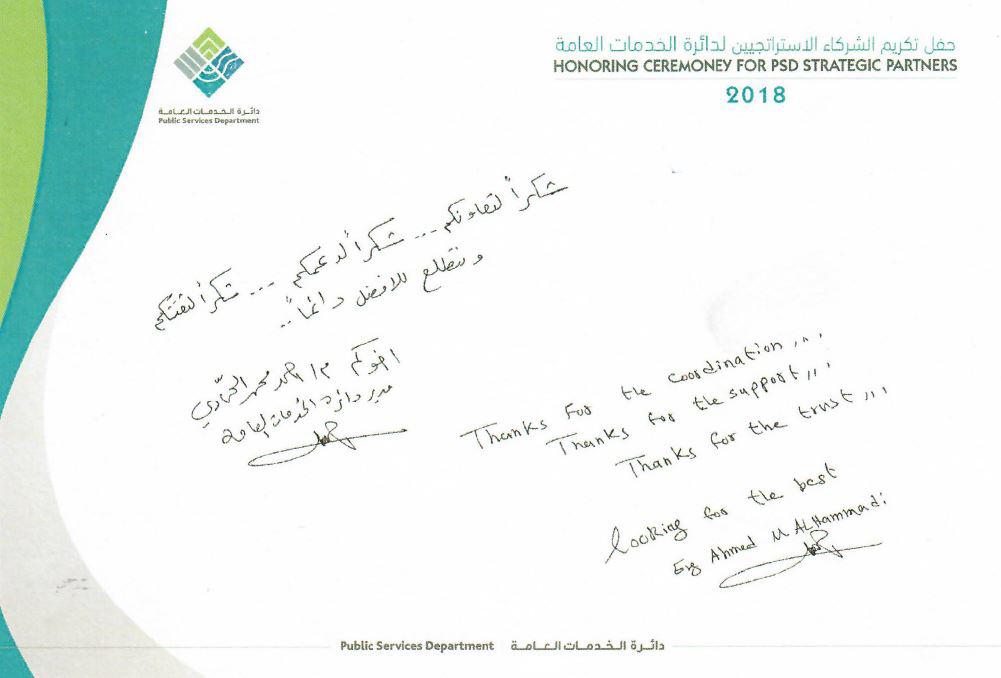 دائرة الخدمات العامة
Public Services Department
حفل تكريم الشركاء الاستراتجيين لدائرة الخدمات العامة
HONORING CEREMONEY FOR PSD STRATEGIC PARTNERS
2018
شكراً لتعاونكم... شكراً لدعمكم... شكراً لثقتكم
ونتطلع للافضل دائماً..
اخوكم م/ احمد محمد الحمادي
مدير دائرة الخدمات العامة
Thanks for the coordination,,,
Thanks for the support,,,
Thanks for the trust,,,
looking for the best
Eng Ahmed M ALHammadi
Public Services Department دائرة الخدمات العامة